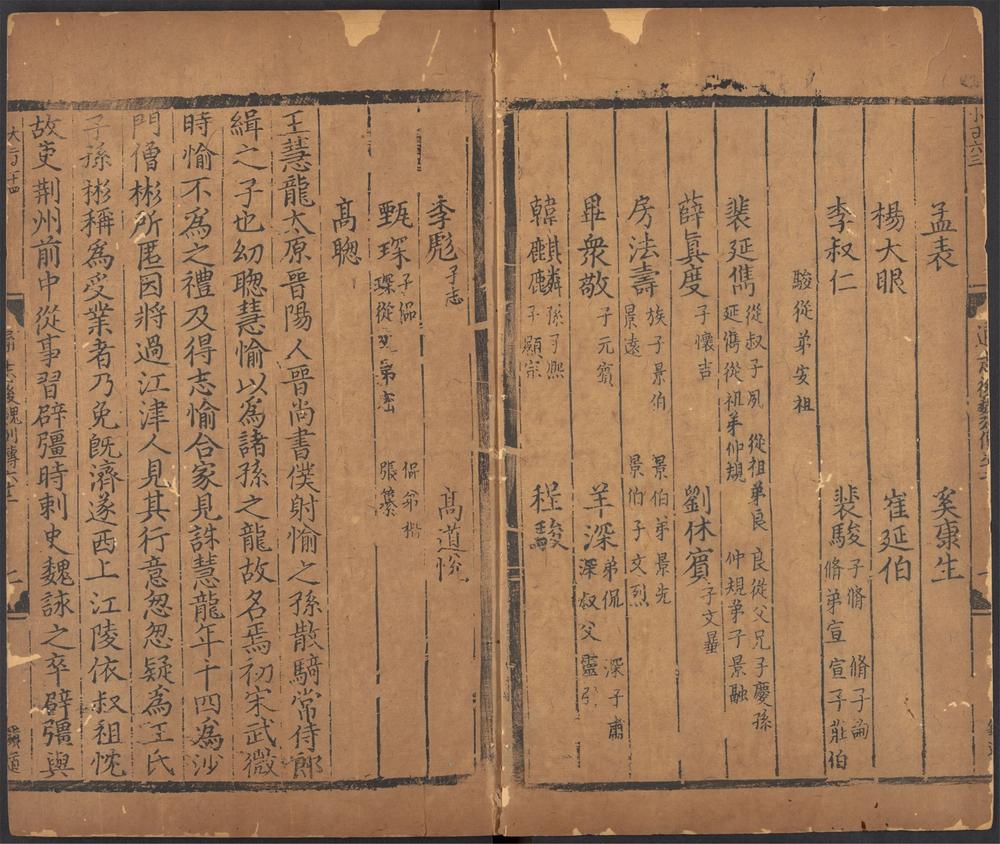 孟表
奚康生
楊大眼
崔延伯
李叔仁
裴駿子脩 脩子詢
脩弟宣 宣子莊伯
駿從弟安祖
裴延儁從叔子夙 從祖弟良 良從父兄子慶孫
延儁從祖弟仲規 仲規弟子景融
薛眞度子懷吉
劉休賓子文曅
房法壽族子景伯 景伯弟景先
景遠 景伯子文烈
畢衆敬子元賓
羊深弟侃 深子肅
深叔父靈引
韓麒麟孫子熙
子顯宗
程駿
李彪子志
高道悅
甄琛子侃 侃弟楷
琛從父弟密 張纂
高聰
王慧龍太原晉陽人晉尚書僕射愉之孫散騎常侍郎
緝之子也幼聰慧愉以爲諸孫之龍故名焉初宋武微
時愉不爲之禮及得志愉合家見誅慧龍年十四爲沙
門僧彬所匿因將過江津人見其行意怱怱疑爲王氏
子孫彬稱爲受業者乃免旣濟遂西上江陵依叔祖忱
故吏荆州前中從事習辟彊時刺史魏詠之卒辟彊與